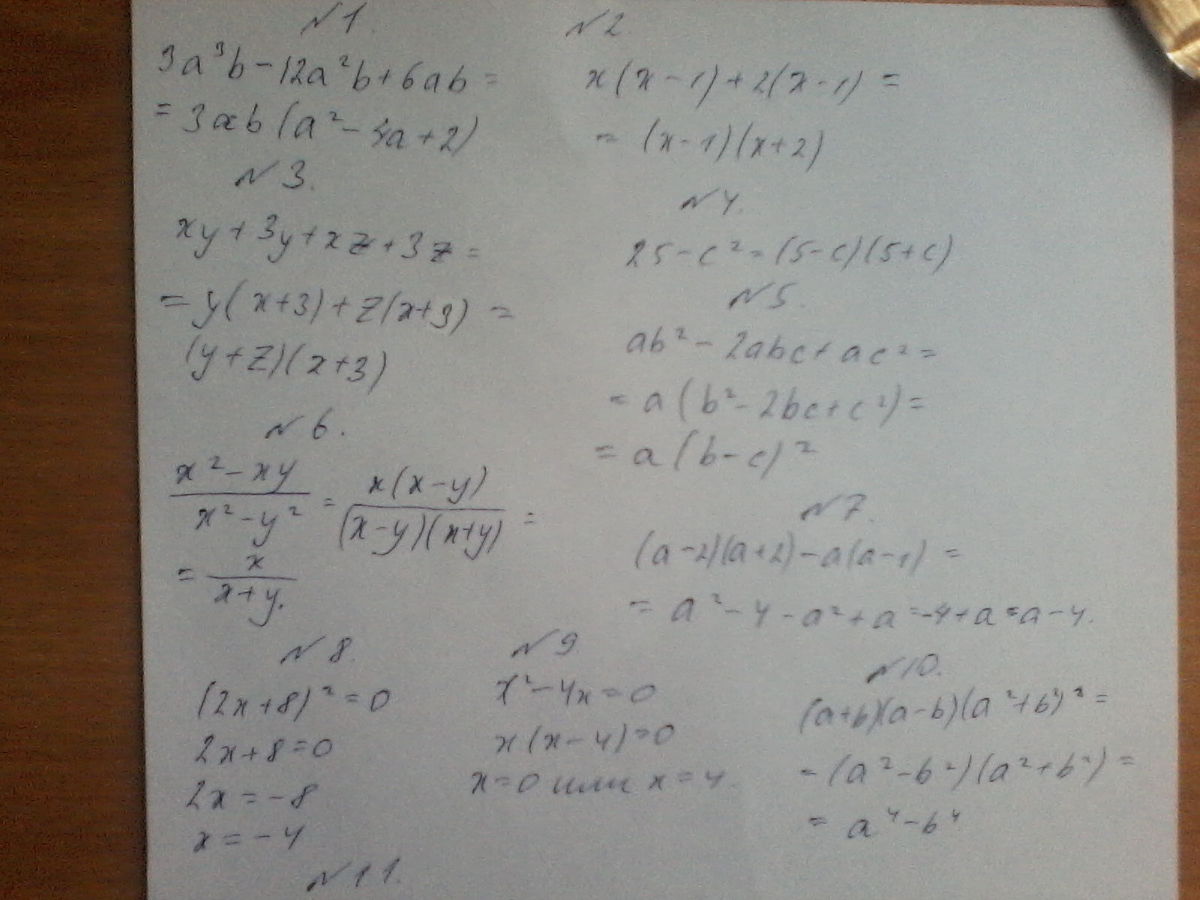 №1.
3a³b - 12a²b + 6ab =
= 3ab (a² - 4a + 2)
№2.
x(x-1) + 2(x-1) =
= (x-1)(x+2)
№3.
xy + 3y + xz + 3z =
= y(x+3) + z(x+3) =
(y+z)(x+3)
№4.
25 - c² = (5-c)(5+c)
№5.
ab² - 2abc + ac² =
= a(b² - 2bc + c²) =
= a(b-c)²
№6.
x² - xy / x² - y² = x(x-y) / (x-y)(x+y) =
= x / x+y.
№7.
(a-2)(a+2) - a(a-1) =
= a² - 4 - a² + a = -4 + a = a - 4.
№8.
(2x+8)² = 0
2x+8 = 0
2x = -8
x = -4
№9
x² - 4x = 0
x(x-4) = 0
x = 0 или x = 4.
№10.
(a+b)(a-b)(a²+b²) =
= (a²-b²)(a²+b²) =
= a⁴ - b⁴
№11.